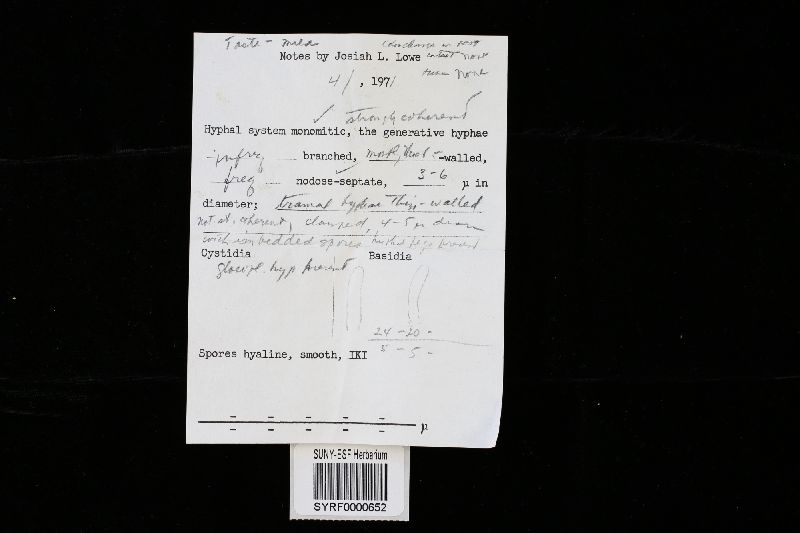 Taste - mild
in KOH
Notes by Josiah L. Lowe context none
none
4/ , 1971
strongly coherent
Hyphal system monomitic, the generative hyphae
infreq branched, mostly thick -walled,
freq nodose-septate, 3-6 µ in
diameter; tramal hyphae thin-walled
not st. coherent, clamped, 4-5 µ diam
with imbedded spores
Cystidia Basidia
gloeopl. hyp present
24 - 20 -
5 - 5 -
Spores hyaline, smooth, IKI
µ
SUNY-ESF Herbarium
SYRF0000652